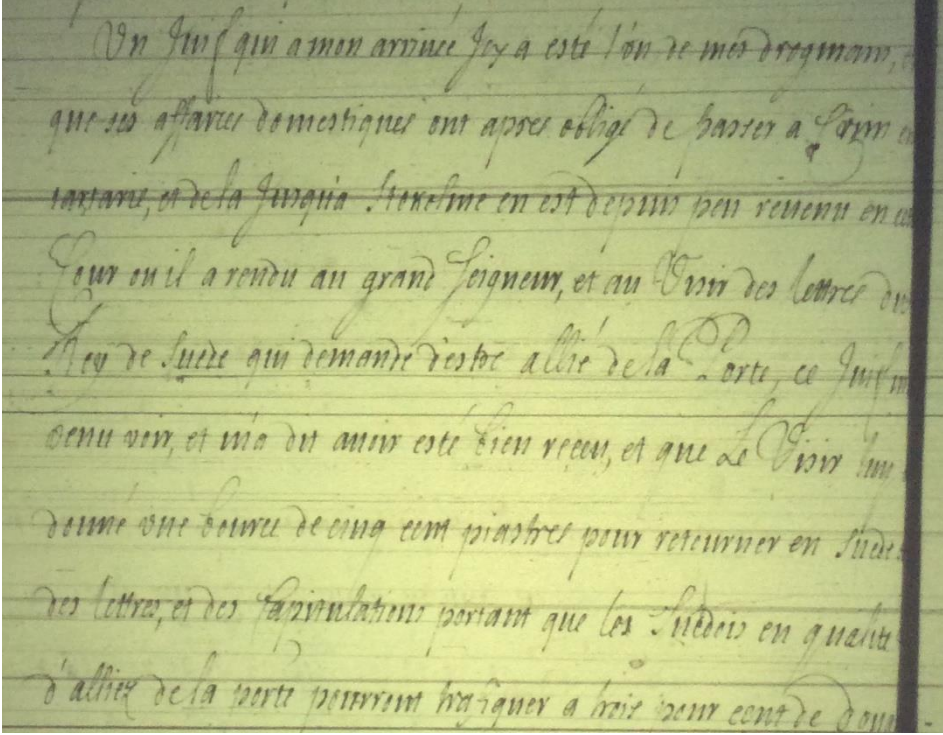 Un Juif qui a mon arriuée Jcy a esté l'un de mes drogmans,
que ses affaires domestiques ont apres obligé de passer a Crim en
tartarie, et de la Jusqu'a Stokolme en est depuis peu reuenu en
Cour ou il a rendu au grand Seigneur, et au Visir des lettres du
Roy de Suede qui demande d'estre allié de la Porte, ce Juif m
venu voir, et m'a dit auoir esté bien reçeu, et que Le Visir luy
donné vne bource de cinq cent piastres pour retourner en Suede
des lettres, et des Capitulations portant que les Suedois en qualité
d'alliez de la porte pourront trafiquer a trois pour cent de doua-